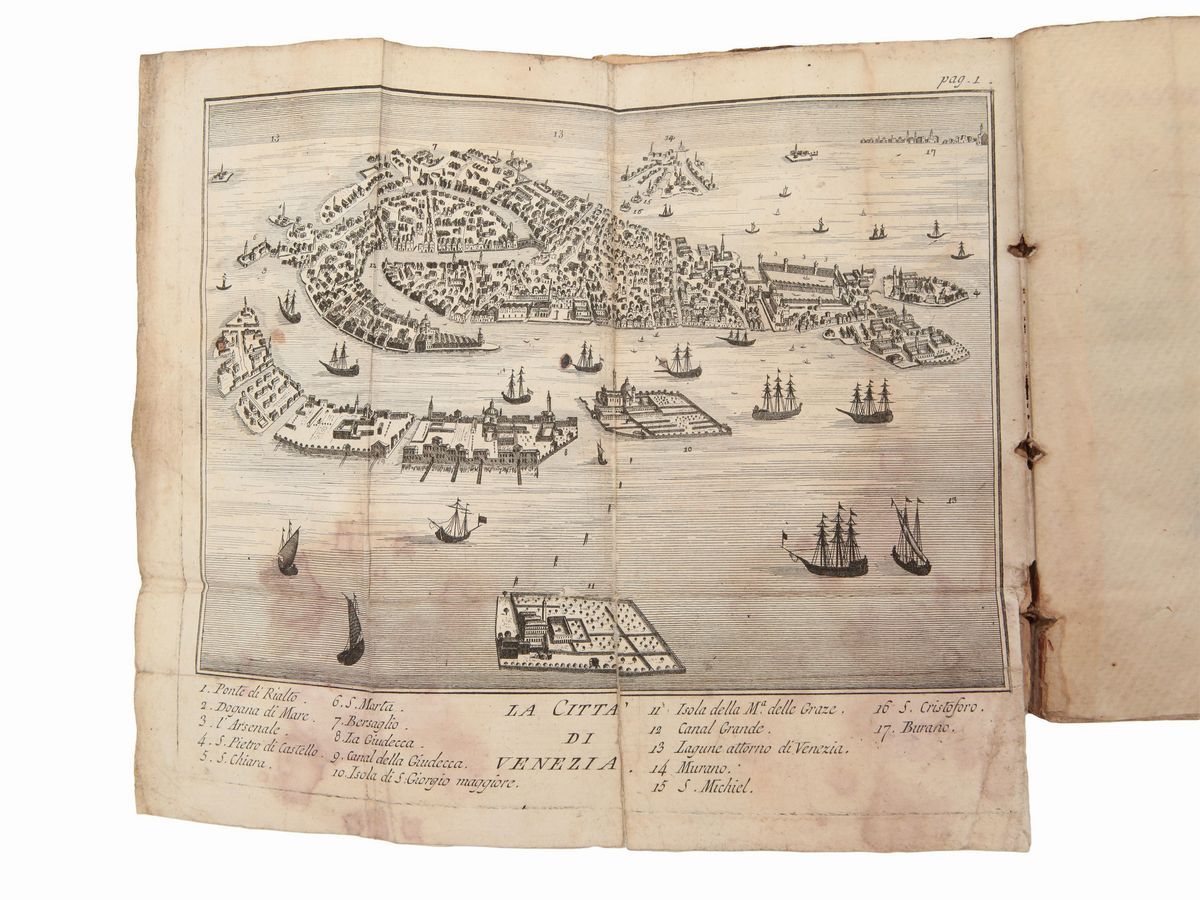 pag. 1
13
13
14
17
7
15
16
12
10
8
13
11
1. Ponte di Rialto.
2. Dogana di Mare.
3. l'Arsenale.
4. S. Pietro di Castello.
5. S. Chiara.
6. S. Marta.
7. Bersaglio.
8. La Giudecca.
9. Canal della Giudecca.
10. Isola di S. Giorgio maggiore.
LA CITTA'
DI
VENEZIA.
11 Isola della M.ª delle Graze.
12 Canal Grande.
13 Lagune attorno di Venezia.
14 Murano.
15 S. Michiel.
16 S. Cristoforo.
17. Burano.